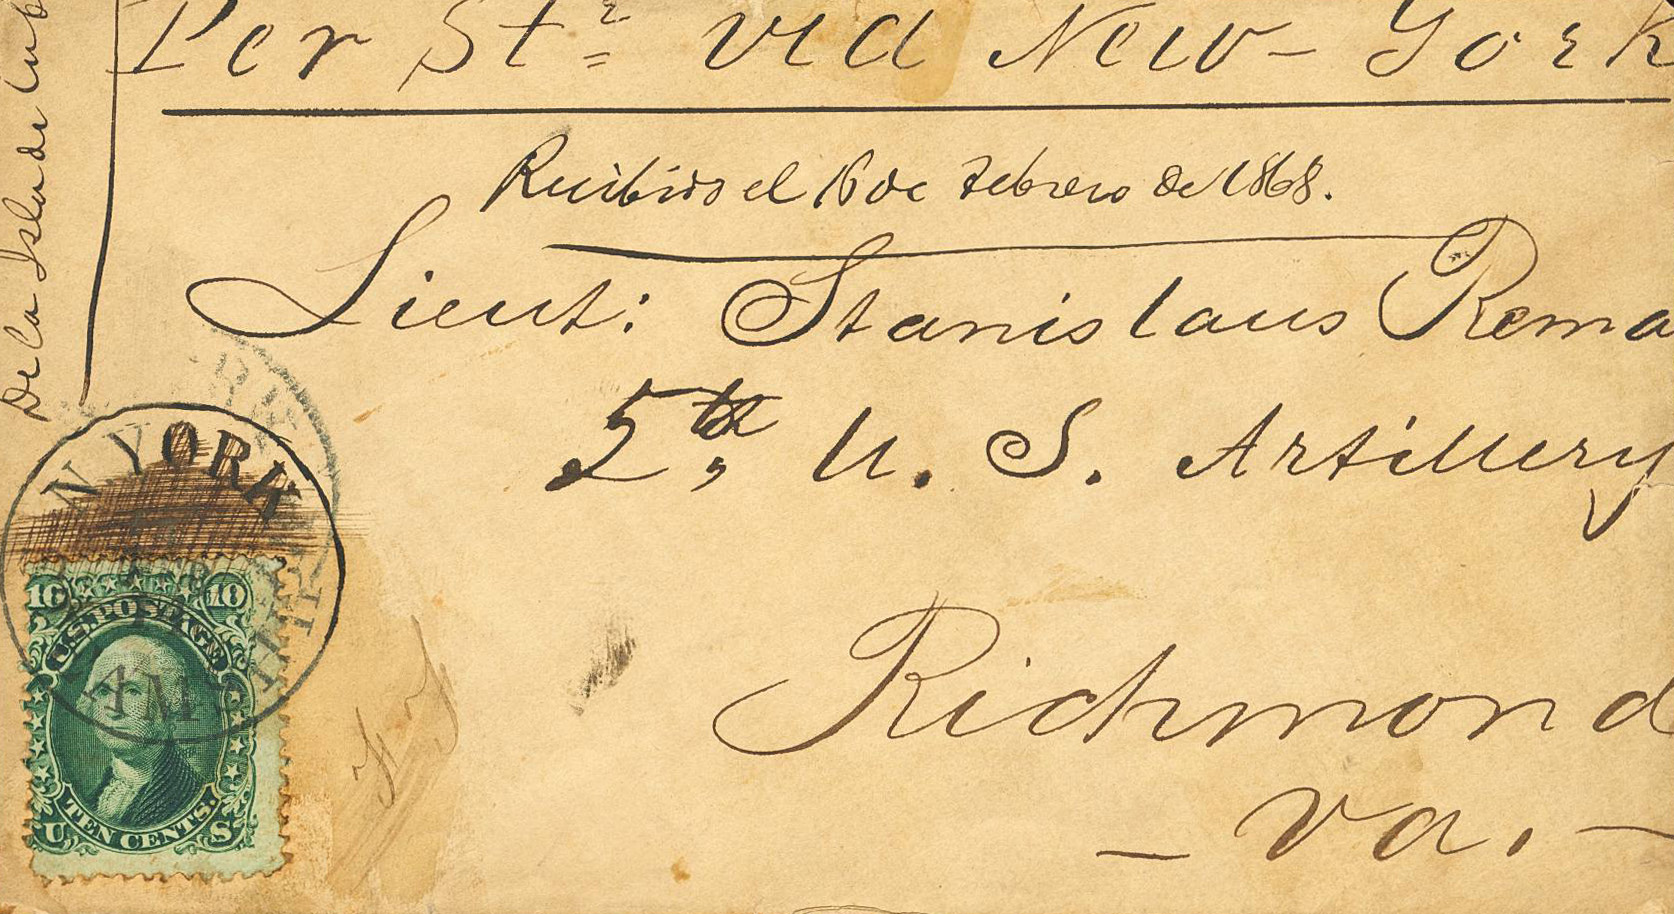 Per St.r via New-York
De la Isla de Cuba
Recibido el 16 de Febrero de 1868.
Lieut: Stanislaus Rema
5th, U. S. Artillery
N YORK
10 10
U.S. POSTAGE
AM
TEN CENTS.
U S
Richmond
- Va. -